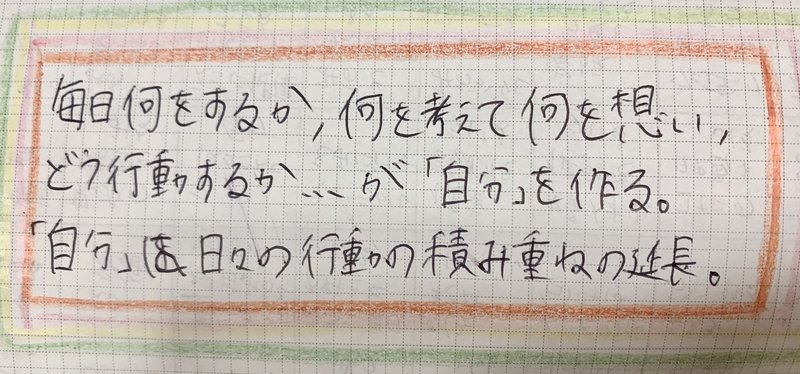 毎日何をするか,何を考えて何を想い,
どう行動するか...が「自分」を作る。
「自分」は日々の行動の積み重ねの延長。